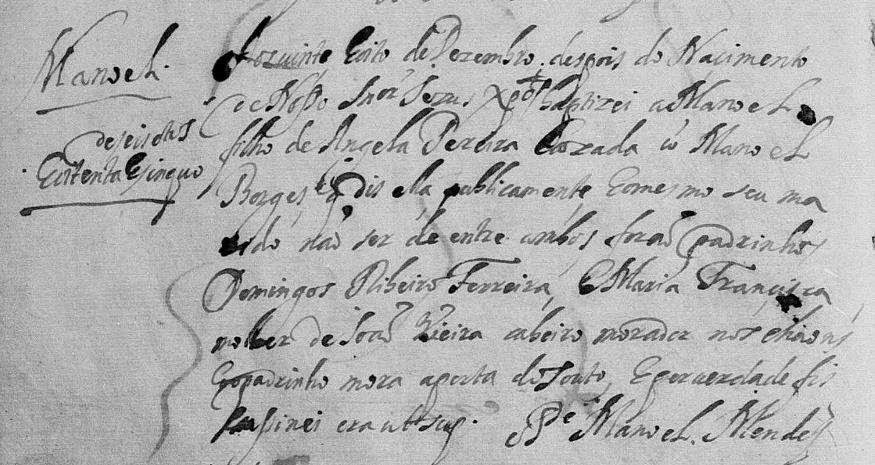 Manoel.
de seis sentos
Eoitenta Esinquo
Aos vinte Eoito de Dezembro despois do Nacimento
de Nosso Snor Jezus Xpto baptizei a Manoel
filho de Angela Pereira Cazada co Manoel
Borges, q dis ela publicamente Eomesmo seu ma
rido não ser de entre ambos forão padrinhos
Domingos Ribeiro Ferreira, E Maria Francisca
molher de João Vieira cabeiro morador nos chãos
Eopadrinho mora aporta do Souto, Eperverdade fis
Easinei era ut sup. o Pe Manoel Mendes